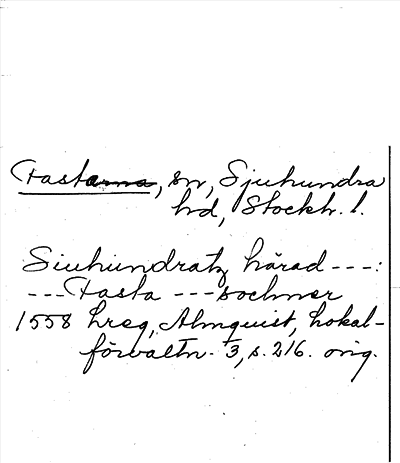 Fasta̶r̶n̶a̶, sn, Sjuhundra
hd, Stockh. l.
Siuhundratz härad ---:
--- Fasta --- sochner
1558 hreg, Almquist, Lokal-
förvaltn. 3, s. 216. orig.